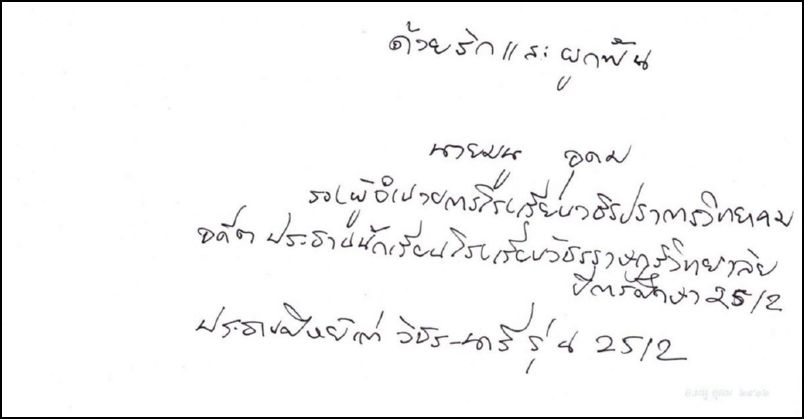 ด้วยรักและผูกพัน
นายมนู อุดม
รองผู้อำนวยการโรงเรียนวชิรปราการวิทยาคม
อดีต ประธานนักเรียนโรงเรียนวัชรราษฎร์วิทยาลัย
ปีการศึกษา 2512
ประธานศิษย์เก่า วัชร-นารี รุ่น 2512